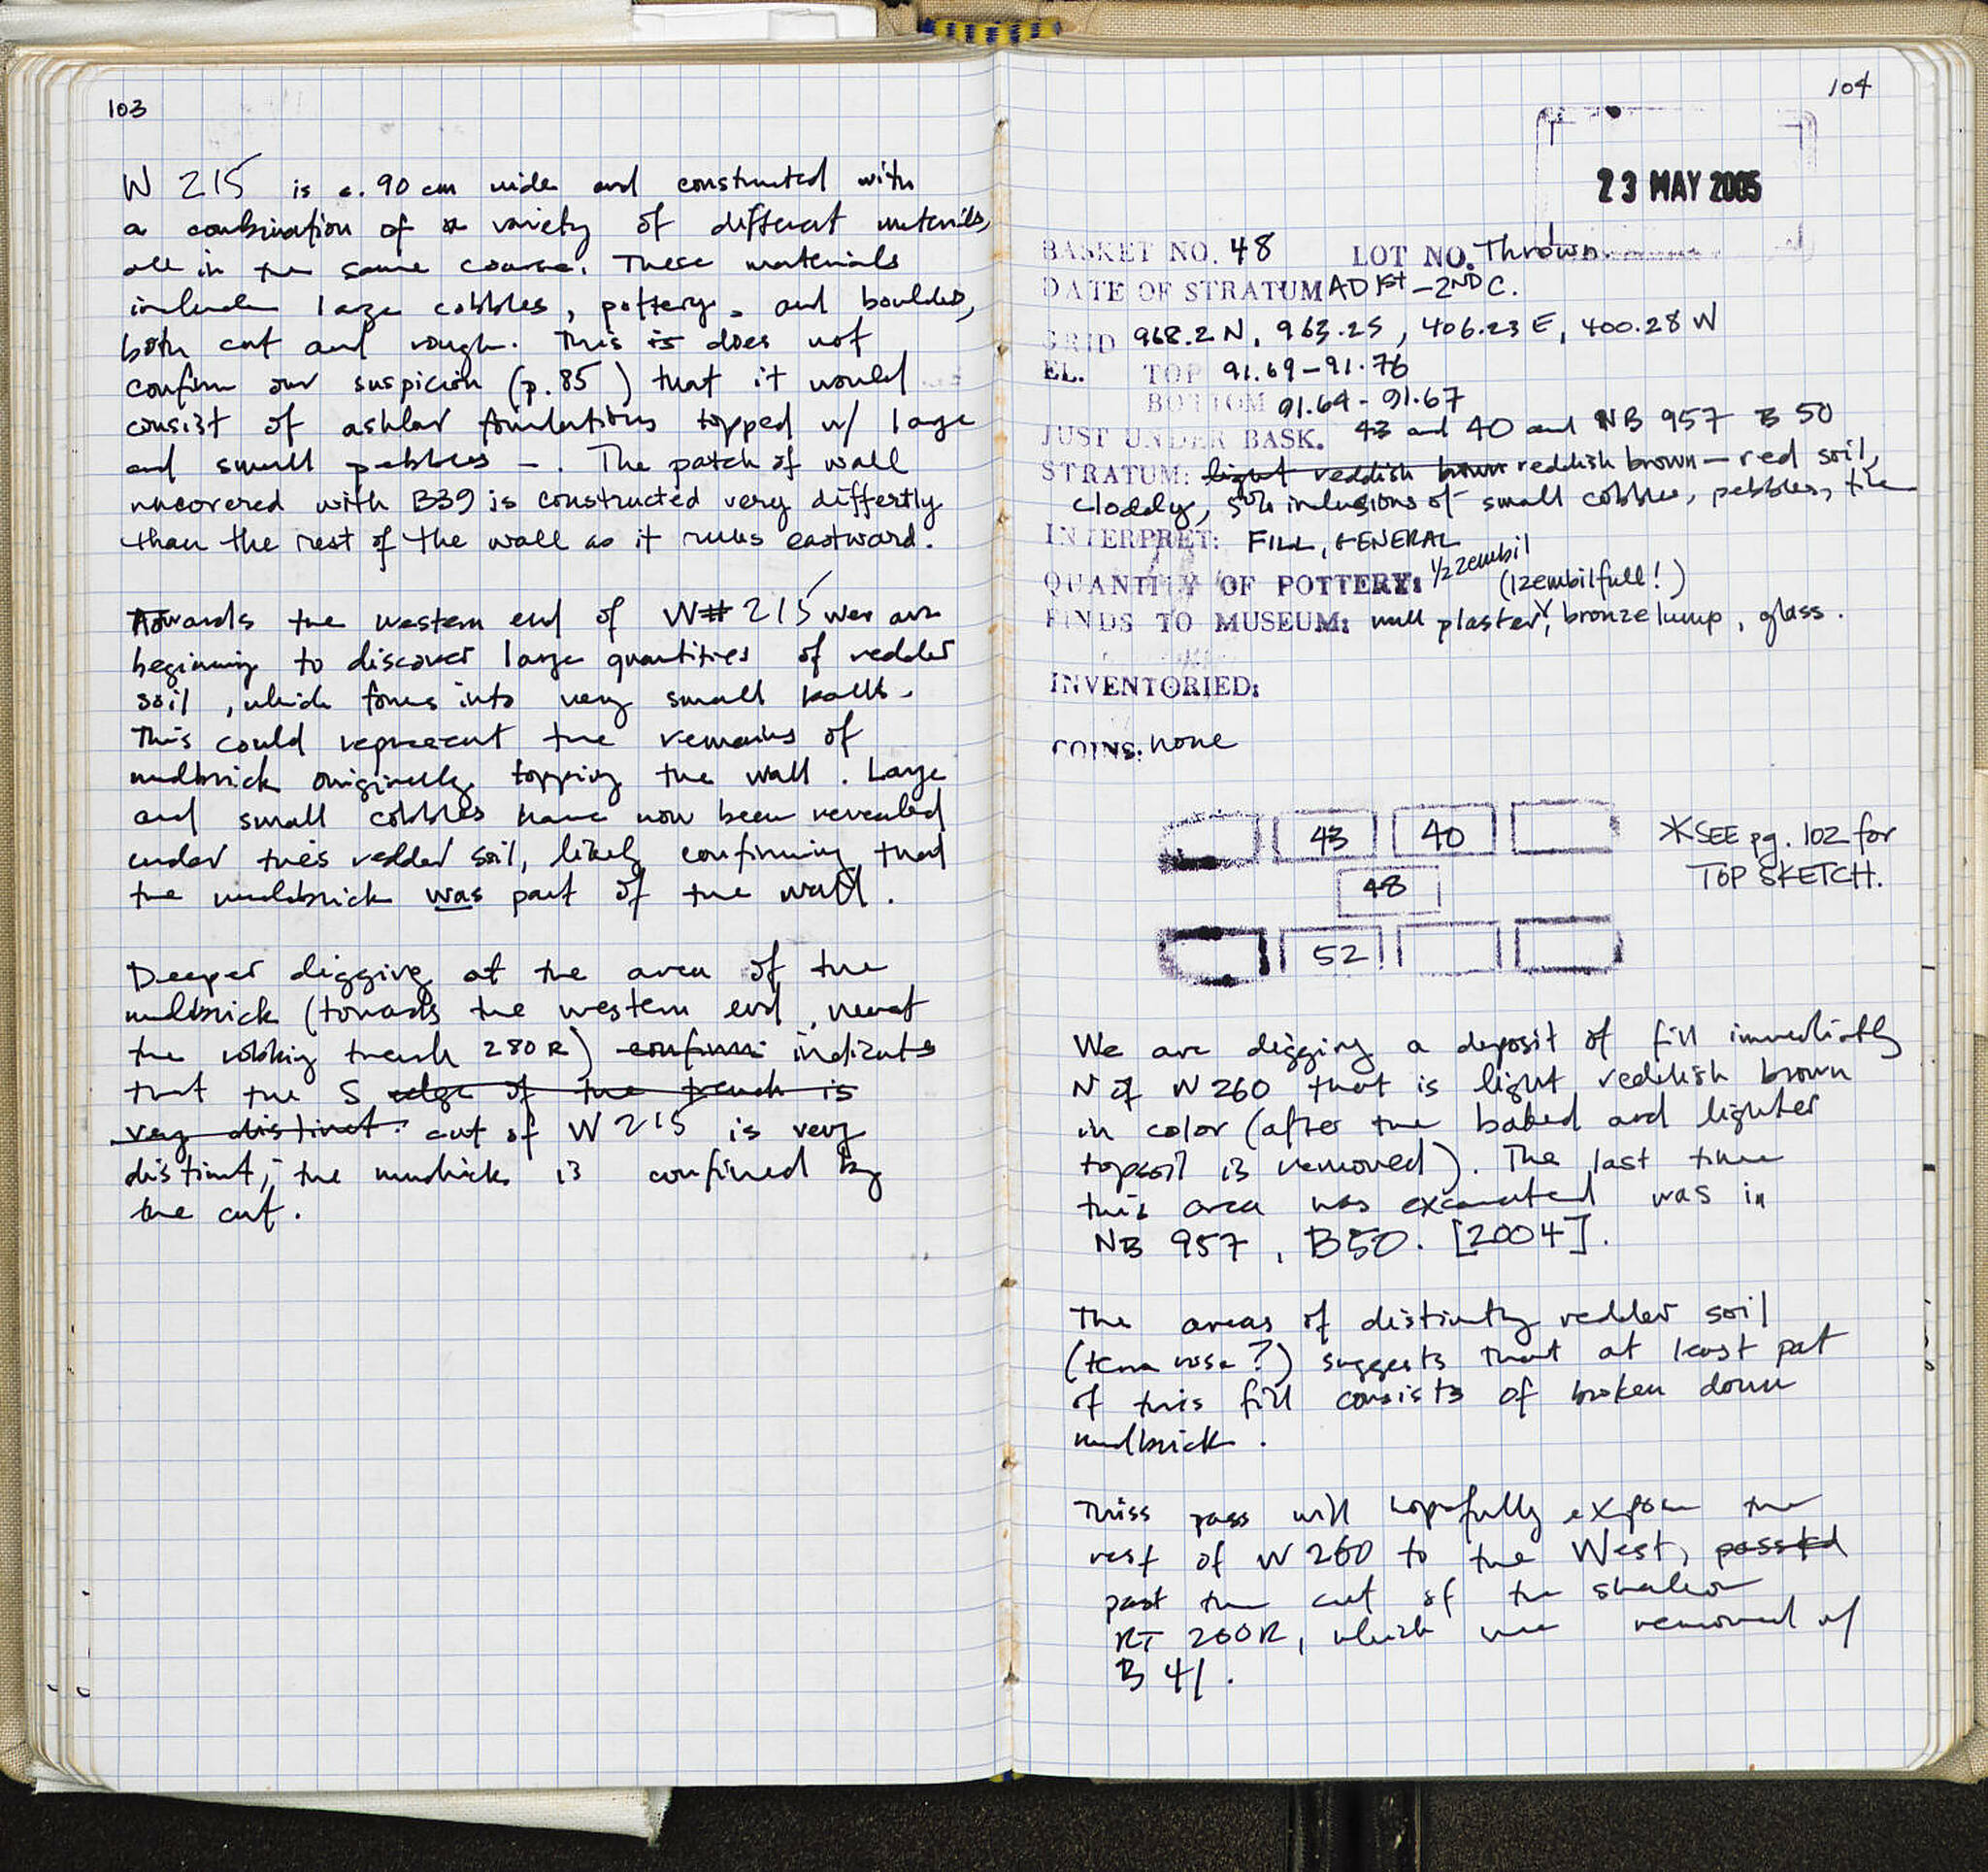 103
W 215 is c. 90 cm wide and constructed with
a combination of a variety of different materials,
all in the same course. These materials
include large cobbles, pottery, and boulders,
both cut and rough. This is does not
confirm our suspicion (p. 85) that it would
consist of ashlar foundations topped w/ large
and small pebbles -. The patch of wall
uncovered with B39 is constructed very differtly
than the rest of the wall as it runs eastward.
Towards the western end of W# 215 we are
beginning to discover large quantities of redder
soil, which forms into very small balls.
This could represent the remains of
mudbrick originally topping the wall. Large
and small cobbles have now been revealed
under this redder soil, likely confirming that
the mudbrick was part of the wall.
Deeper digging at the area of the
mudbrick (towards the western end, nearest
the robbing trench 280R) confirm indicates
that the S edge of the trench is
very distinct. cut of W 215 is very
distinct; the mudbrick is confined by
the cut.
104
23 MAY 2005
BASKET NO. 48 LOT NO. Thrown
DATE OF STRATUM AD 1st - 2ND C.
GRID 968.2 N, 963.2 S, 406.23 E, 400.28 W
EL. TOP 91.69 - 91.76
BOTTOM 91.64 - 91.67
JUST UNDER BASK. 43 and 40 and NB 957 B 50
STRATUM: light reddish brown reddish brown - red soil,
cloddy, 5% inclusions of small cobbles, pebbles, tile
INTERPRET: FILL, GENERAL
QUANTITY OF POTTERY: 1/2 zembil (1 zembil full!)
FINDS TO MUSEUM: wall plaster, bronze lump, glass.
INVENTORIED:
COINS: none
43 40
48
52
*SEE pg. 102 for
TOP SKETCH.
We are digging a deposit of fill immediately
N of W 260 that is light reddish brown
in color (after the baked and lighter
topsoil is removed). The last time
this area was excavated was in
NB 957, B50. [2004].
The areas of distinctly redder soil
(terra rosa?) suggests that at least part
of this fill consists of broken down
mudbrick.
This pass will hopefully expose the
rest of W 260 to the West, passed
past the cut of the shallow
RT 260R, which was removed w/
B 41.